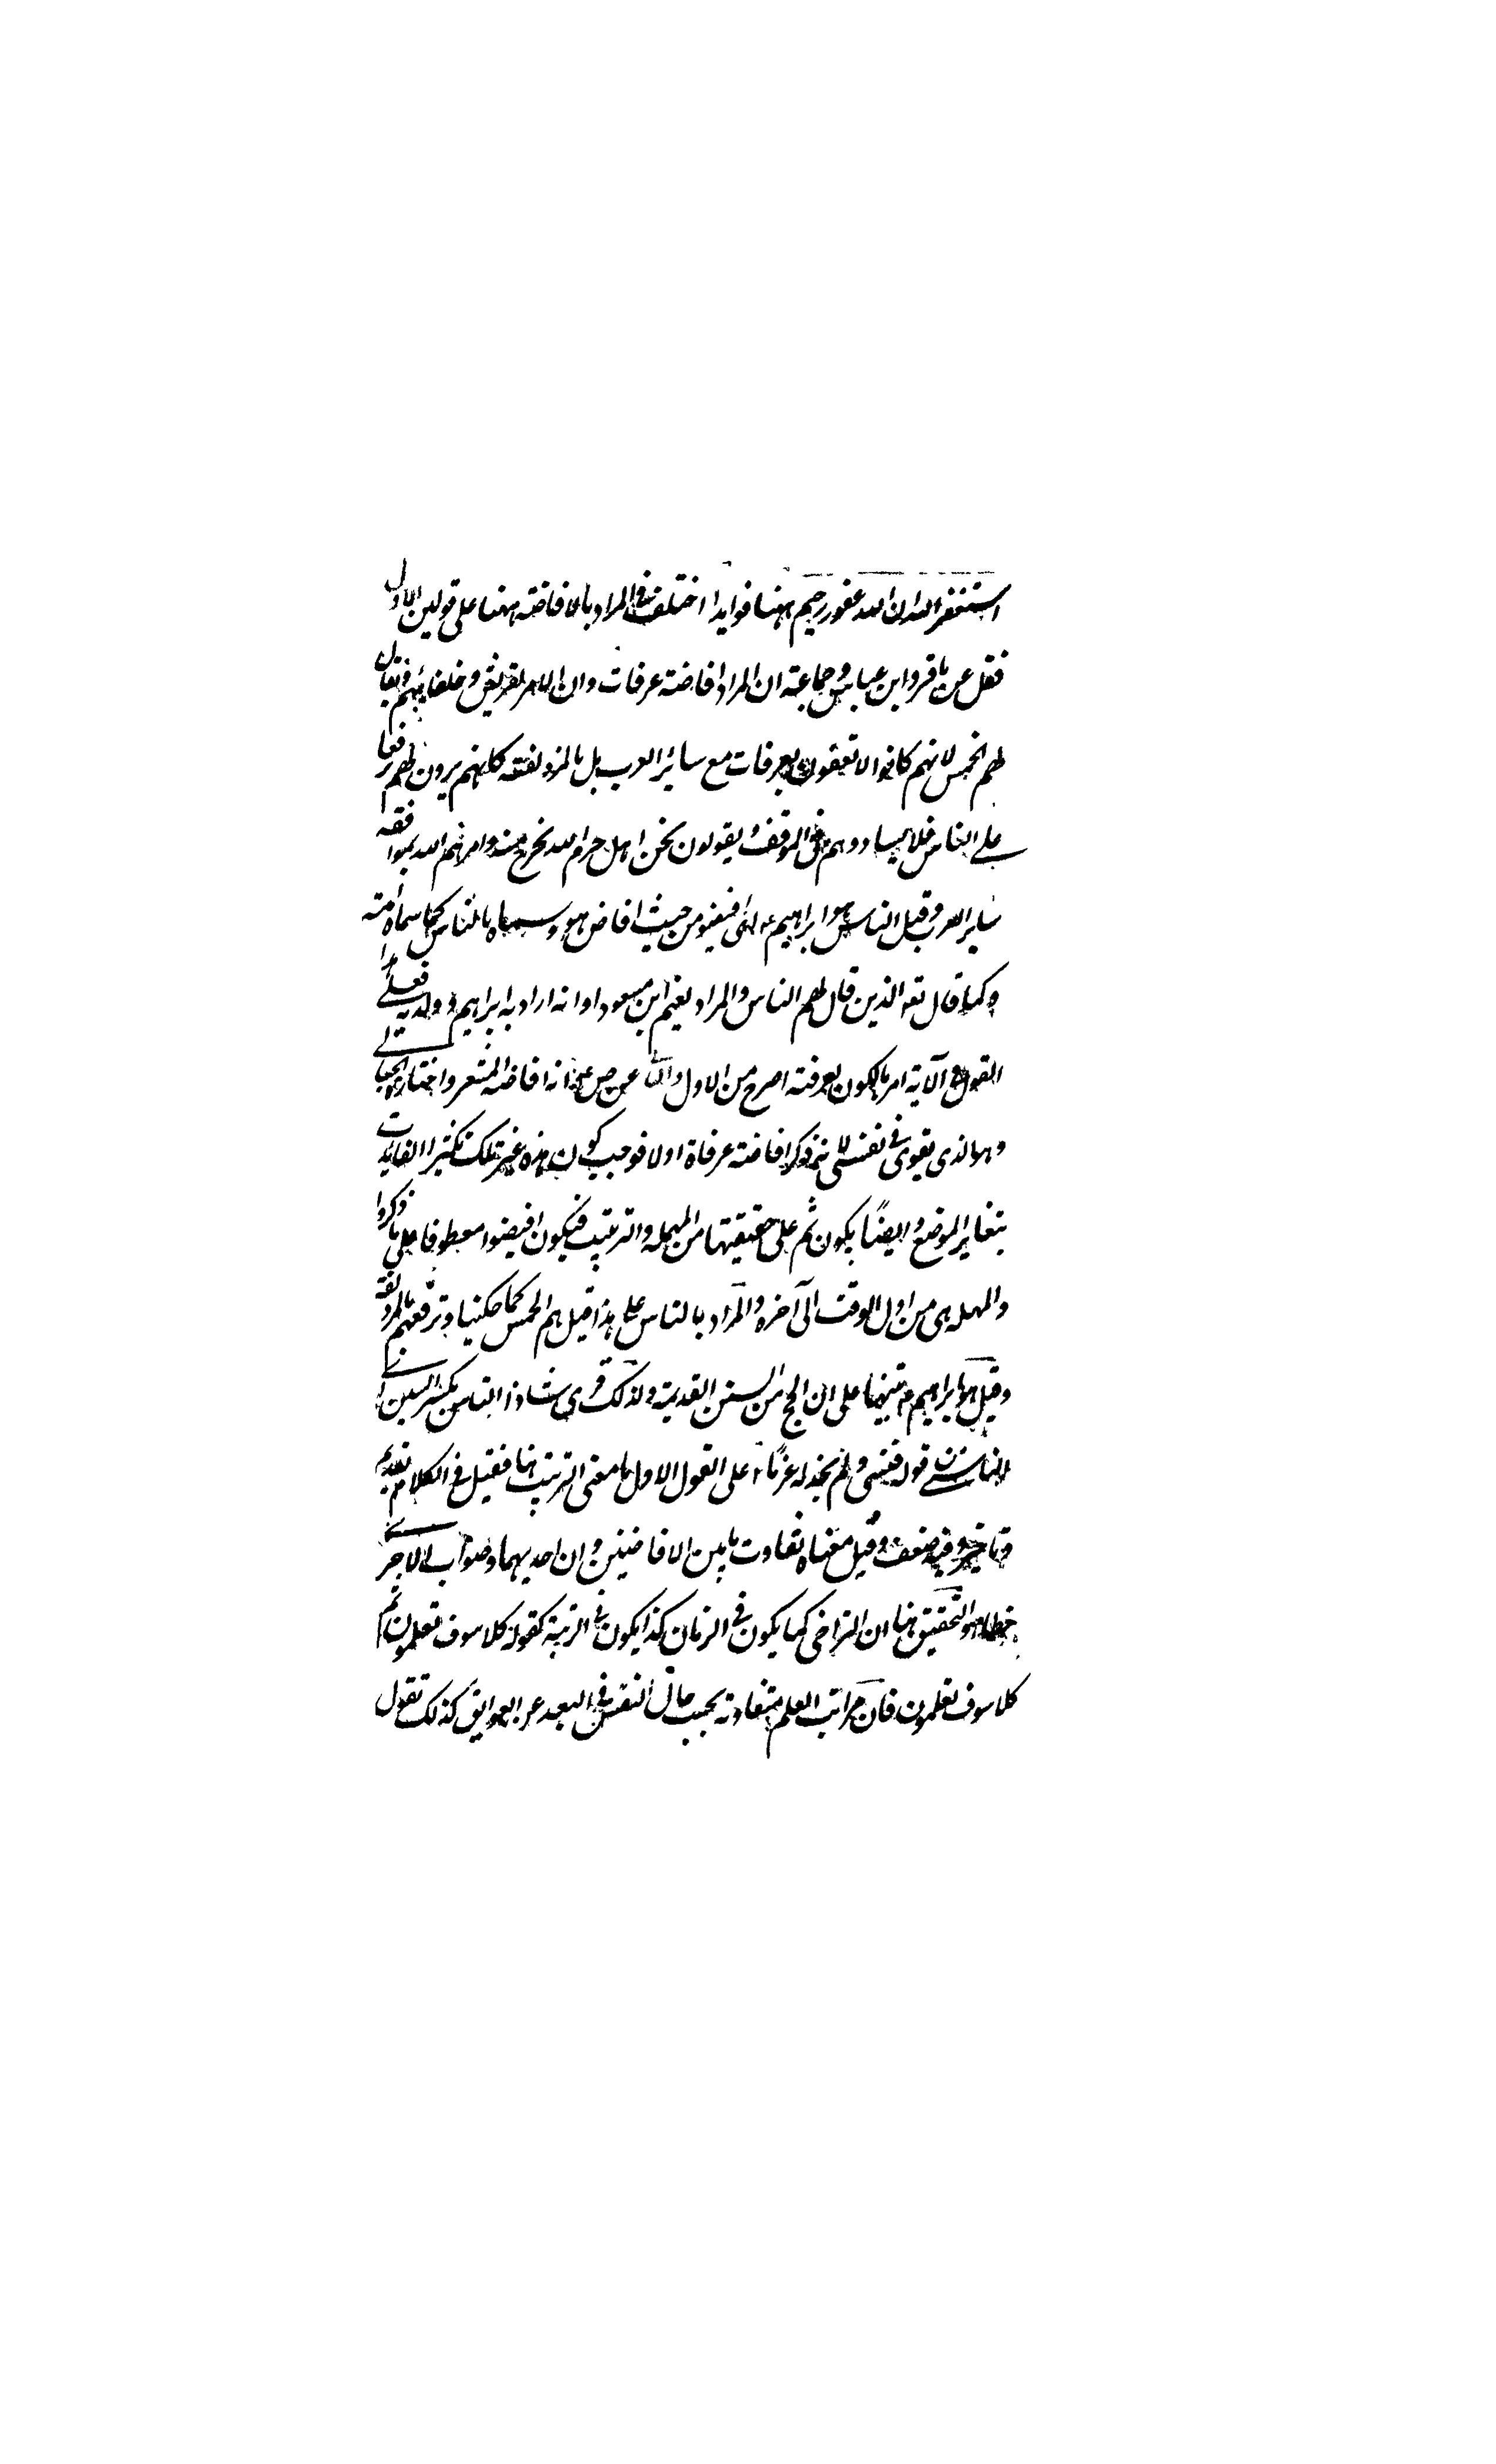 استغفروا الله ان الله غفور رحيم ههنا فوايد ا اختلف فى المراد بالافاضة ههنا على قولين الاول
فنقل عن باقر وابن عباس وجماعة ان المراد افاضة عرفات وان الامر لقريش وحلفائهم ويقال
لهم الحمس لانهم كانوا لا يقفون بعرفات مع سائر العرب بل بالمزدلفة كانهم يرون لهم ترفعا
على الناس فلا يساووهم فى الموقف ويقولون نحن اهل حرم الله نخرج منه وامرهم الله بموافقة
ساير العرب وقيل الناس هو ابراهيم ع اى افيضوا من حيث افاض هو وسماه بالناس كما سماه امة
وكما قال تعه الذين قال لهم الناس والمراد نعيم ابن مسعود او انه اراد به ابراهيم وولديه فعلى هذا
القول فى الآية امر بالكون بعرفة اصرح من الاول عن انه افاضة المشعر واختاره الجبائى
وهو الذى يقوى فى نفسى لانه ذكر افاضة عرفاة اولا فوجب كون هذه غير تلك تكثيرا لفايدت
بتغاير الموضع وايضًا يكون ثم على حقيقتها من المهلة والترتيب فيكون افيضوا معطوفا على فاذكروا
والمهلة هى من اول الوقت الى آخره والمراد بالناس على هذا قيل هم الحمس كما حكينا وترفعهم بالمزدلفة
وقيل هو ابراهيم ع تنبيها على ان الحج من السنن القديمة ولذلك قرى شاذا الناس بكسر السين اى
الناسى من قوله فنسى ولم نجد له عزمًا على القول الاول ما معنى الترتيب هنا فقيل فى الكلام تقديم
وتاخير وفيه ضعف وقيل معناه تفاوت ما بين الافاضتين وان احديهما صواب والاخرى
خطاء والتحقيق هنا ان التراخى كما يكون فى الزمان كذا يكون فى الرتبة كقوله كلا سوف تعلمون ثم
كلا سوف تعلمون فان مراتب العلم متفاوتة بحسب حال النفس فى البعد عن العوايق كذلك تقول